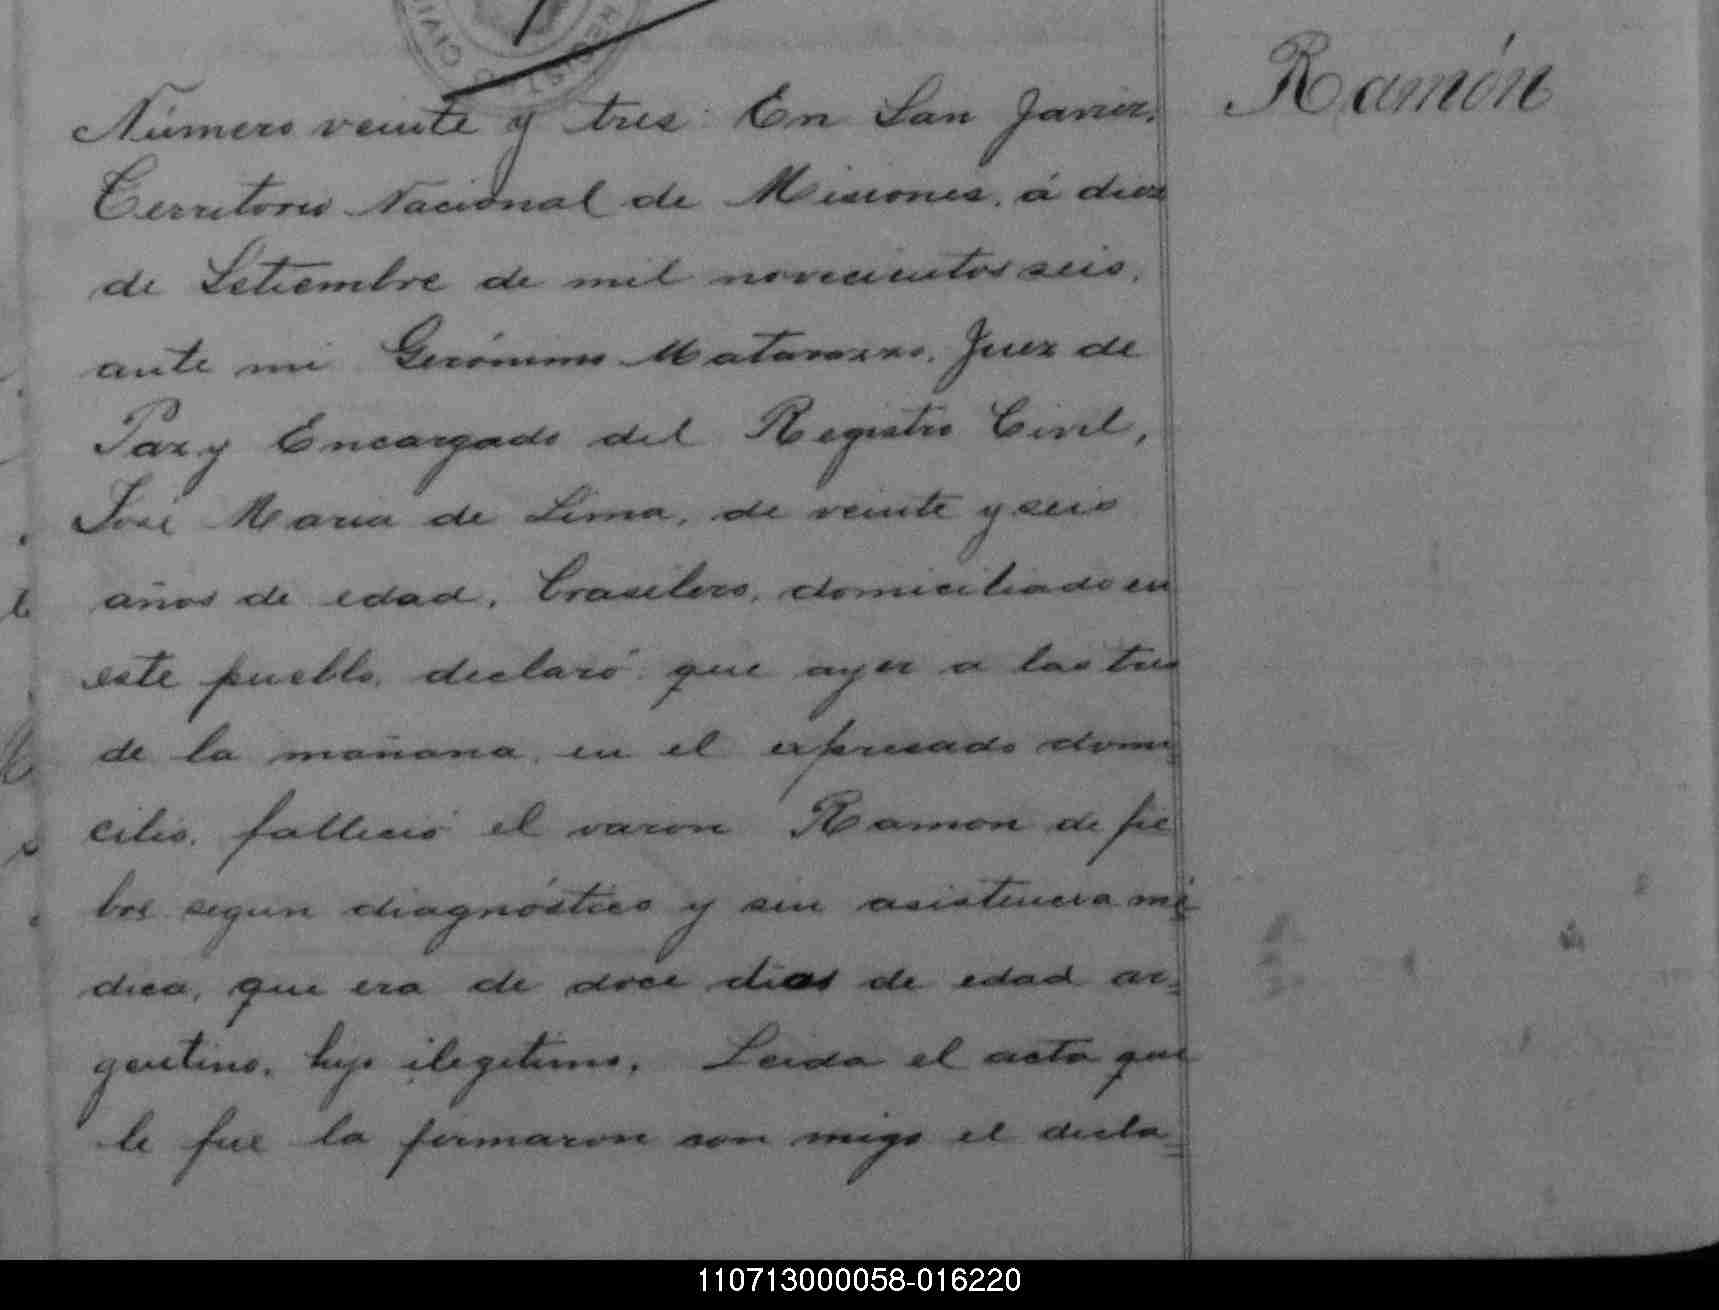 REGISTRO CIVIL
Ramón
Número veinte y tres: En San Javier,
Territorio Nacional de Misiones, á diez
de Setiembre de mil novecientos seis,
ante mi Gerónimo Matarazzo, Juez de
Paz y Encargado del Registro Civil,
José Maria de Lima, de veinte y seis
años de edad, brasilero, domiciliado en
este pueblo, declaró: que ayer a las tres
de la mañana, en el expresado domi=
cilio, falleció el varon Ramon de fie
bre segun diagnóstico y sin asistencia mé=
dica, que era de doce dias de edad ar=
gentino, hijo ilegitimo. Leida el acta que
le fue la firmaron con migo el decla=
110713000058-016220